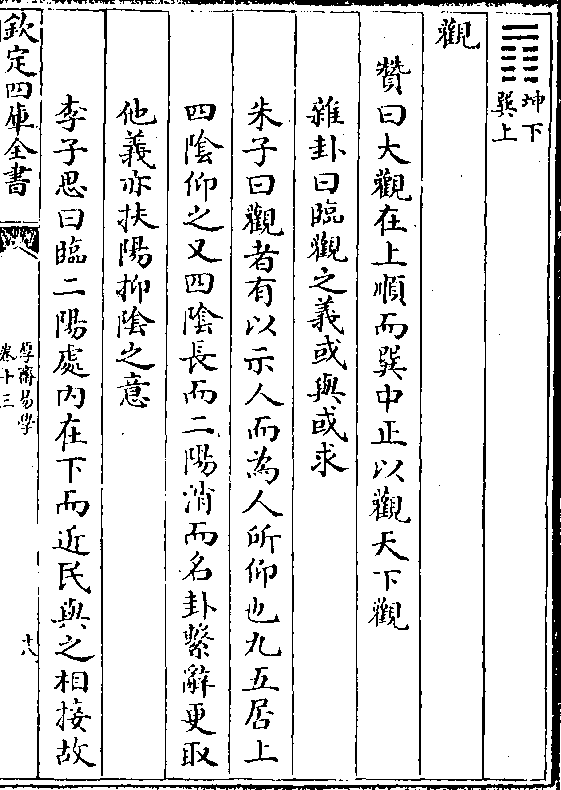 ䷓坤下
巽上
觀
贊曰大觀在上順而巽中正以觀天下觀
雜卦曰臨觀之義或與或求
朱子曰觀者有以示人而為人所仰也九五居上
四陰仰之又四陰長而二陽消而名卦繫辭更取
他義亦扶陽抑陰之意
李子思曰臨二陽處内在下而近民與之相接故
欽定四庫全書
厚齋易學
卷十三
十八